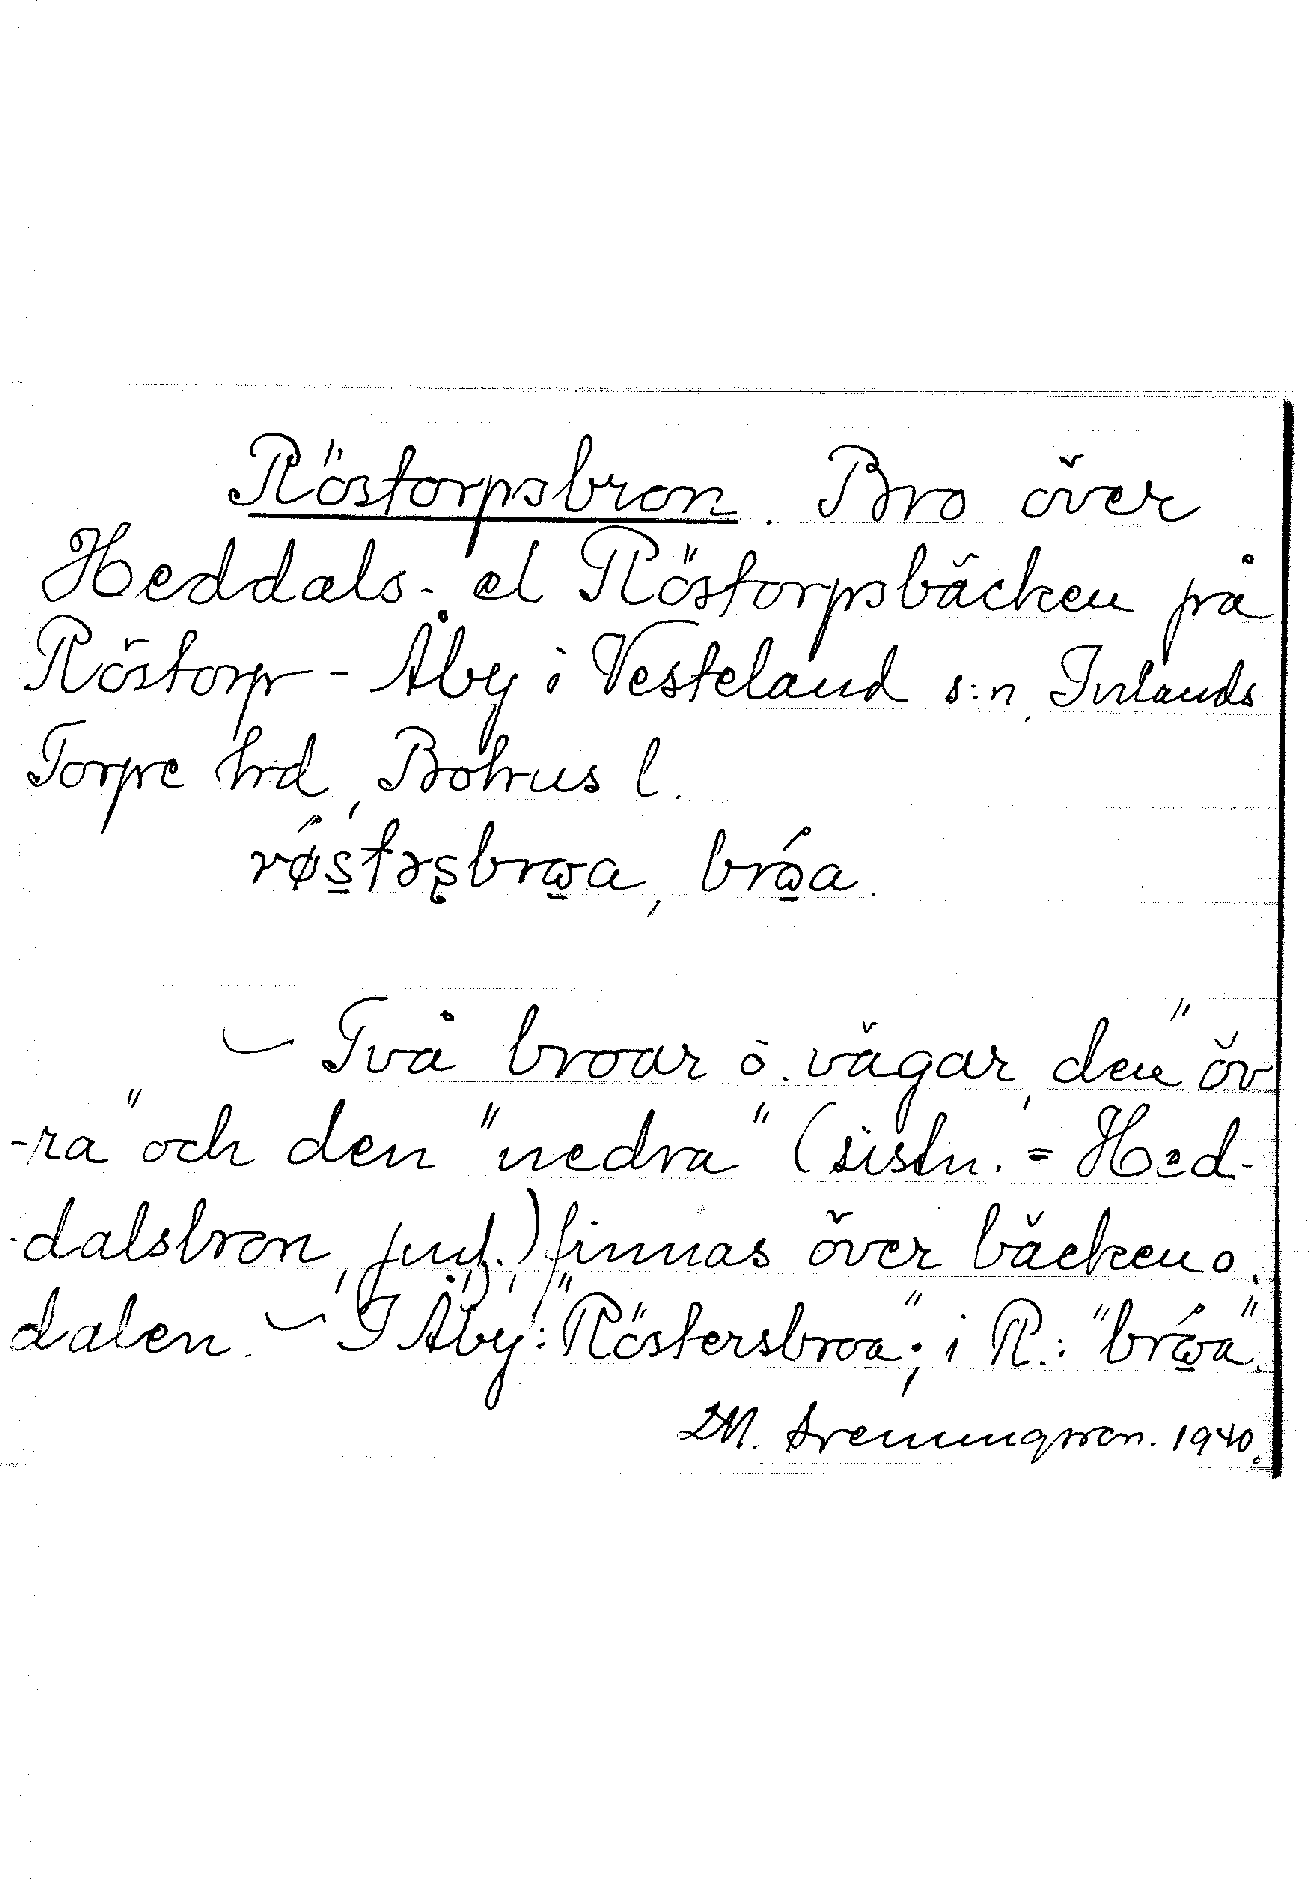 Röstorpsbron. Bro över
Heddals- el Röstorpsbäcken på
Röstorp - Åby i Vesteland s:n, Inlands
Torpe hrd, Bohus l.
brώ̲a.
Två broar o. vägar, den "öv
-ra" och den "nedra" (sistn. = Hed-
-dalsbron, jmf.) finnas över bäcken o.
dalen. - I Åby: "Röstersbroa"; i R.: "brώ̲a".
1940.